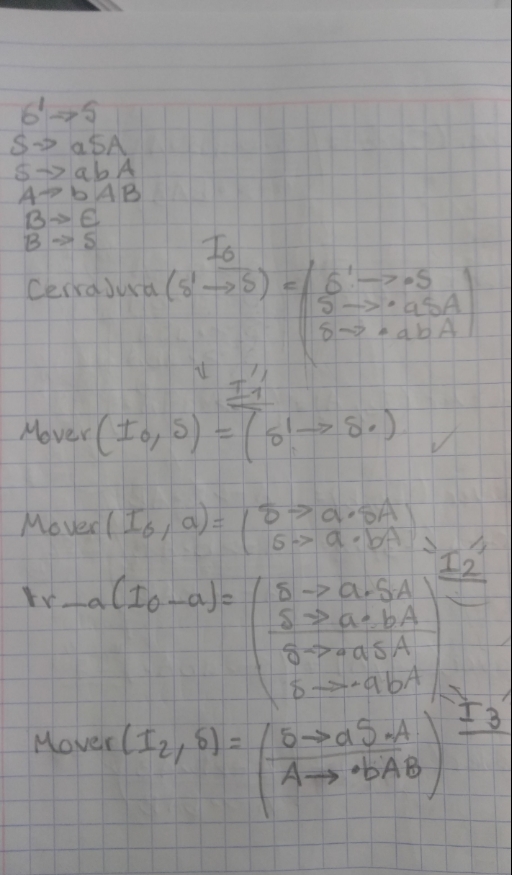 S' → S
S → aSA
S → abA
A → bAB
B → ε
B → S
I0
Cerradura(S' → S) = (S' → •S
S → •aSA
S → •abA)
"I1"
Mover(I0, S) = (S' → S•)
Mover(I0, a) = (S → a•SA
S → a•bA)
"I2"
Ir_a(I0_a) = (S → a•SA
S → a•bA
S → •aSA
S → •abA)
"I3"
Mover(I2, S) = (S → aS•A
A → •bAB)